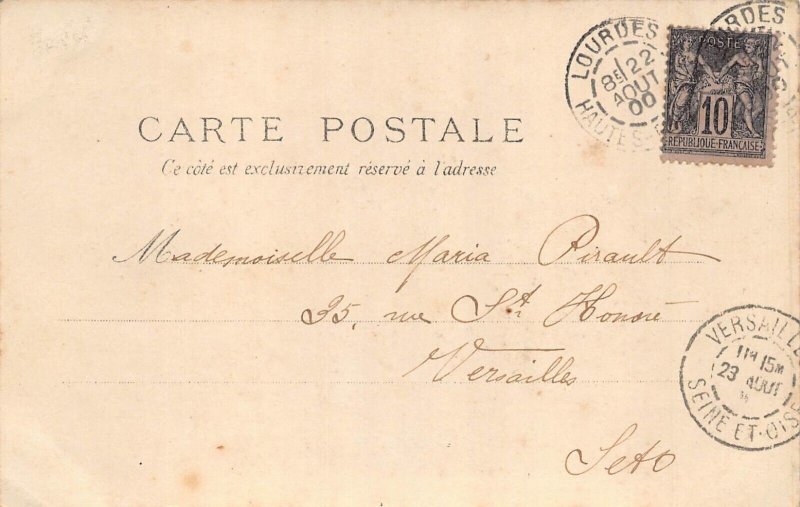 LOURDES
8E 22
AOUT
00
HAUTES
POSTE
10
REPUBLIQUE·FRANÇAISE
CARTE POSTALE
Ce côté est exclusivement réservé à l'adresse
Mademoiselle Maria Pirault
35, rue St Honoré
Versailles
SetO
VERSAILLE
11H 15M
23 AOUT
SEINE ET-OISE